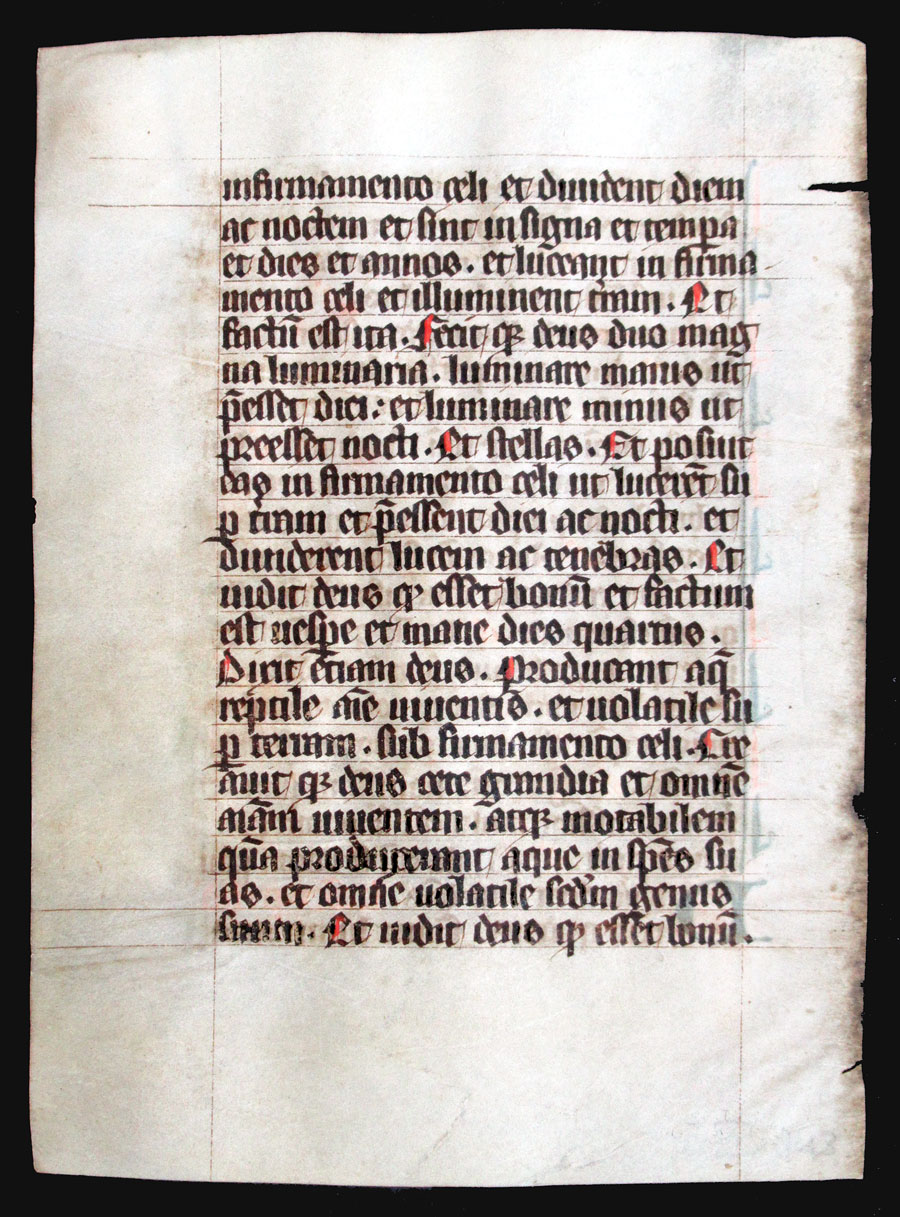 infirmamento celi et diuident diem
ac noctem et sint in signa et tempa
et dies et annos. et luceant in firma
mento celi et illuminent t̄ram. Et
factū est ita. Fecit qꝫ deus duo mag
na luminaria. luminare maius ut
p̄esset diei: et luminare minus ut
preesset nocti. Et stellas. Et posuit
eas in firmamento celi ut lucerēt su
ꝑ t̄ram et p̄essent diei ac nocti. et
diuiderent lucem ac tenebras. Et
uidit deus ꝙ esset bonū et factum
est uespe et mane dies quartus.
Dixit etiam deus. Producant aq̄
reptile aīe uiuentis. et uolatile su
ꝑ terram. sub firmamento celi. Cre
auit qꝫ deus cete grandia et omnē
aīam uiuentem. atqꝫ motabilem
quā produxerant aque in spēs su
as. et omne uolatile scd̄m genus
suum. Et uidit deus ꝙ esset bonū.